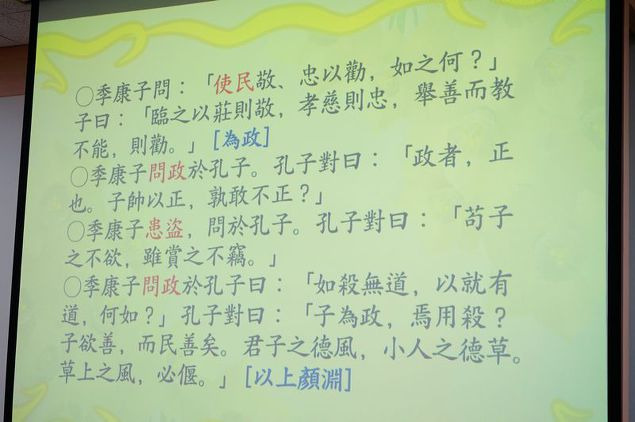 ○季康子問：「使民敬、忠以勸，如之何？」
子曰：「臨之以莊則敬，孝慈則忠，舉善而教
不能，則勸。」[為政]
○季康子問政於孔子。孔子對曰：「政者，正
也。子帥以正，孰敢不正？」
○季康子患盜，問於孔子。孔子對曰：「苟子
之不欲，雖賞之不竊。」
○季康子問政於孔子曰：「如殺無道，以就有
道，何如？」孔子對曰：「子為政，焉用殺？
子欲善，而民善矣。君子之德風，小人之德草。
草上之風，必偃。」[以上顏淵]